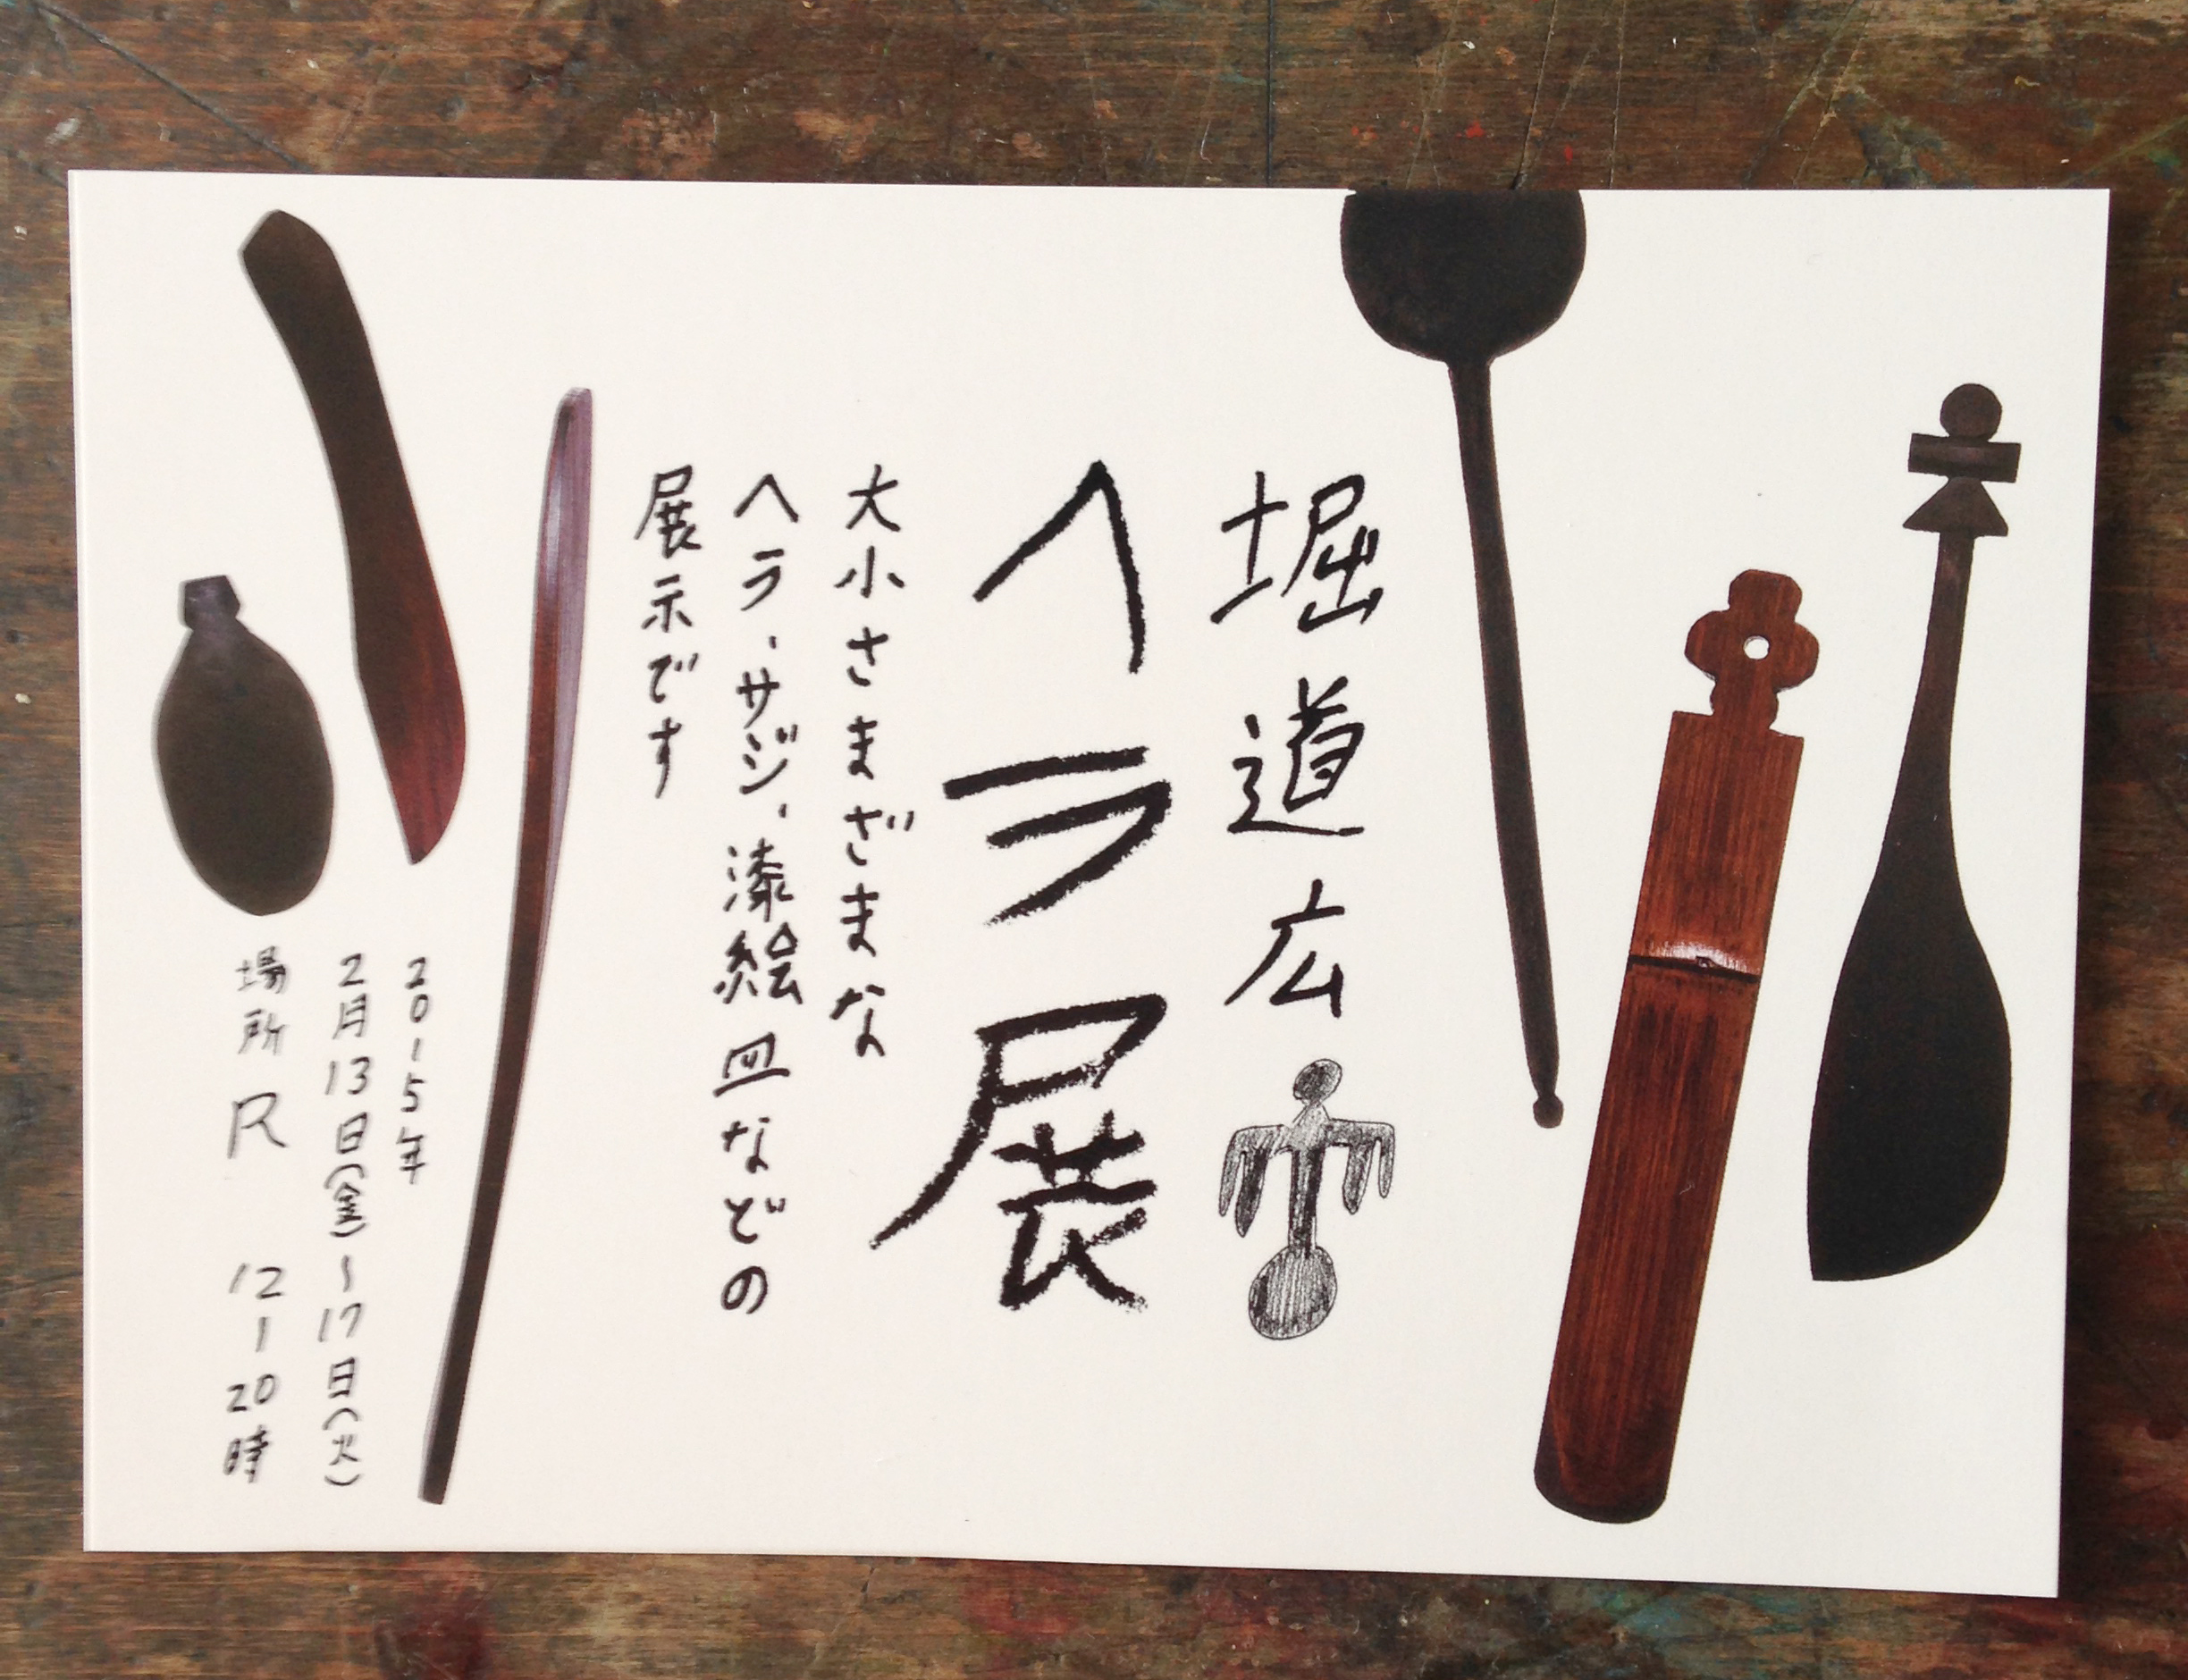 堀道広
ヘラ展
大小さまざまな
ヘラ、サジ、漆絵皿などの
展示です
2015年
2月13日(金)〜17日(火)
場所 R 12-20時